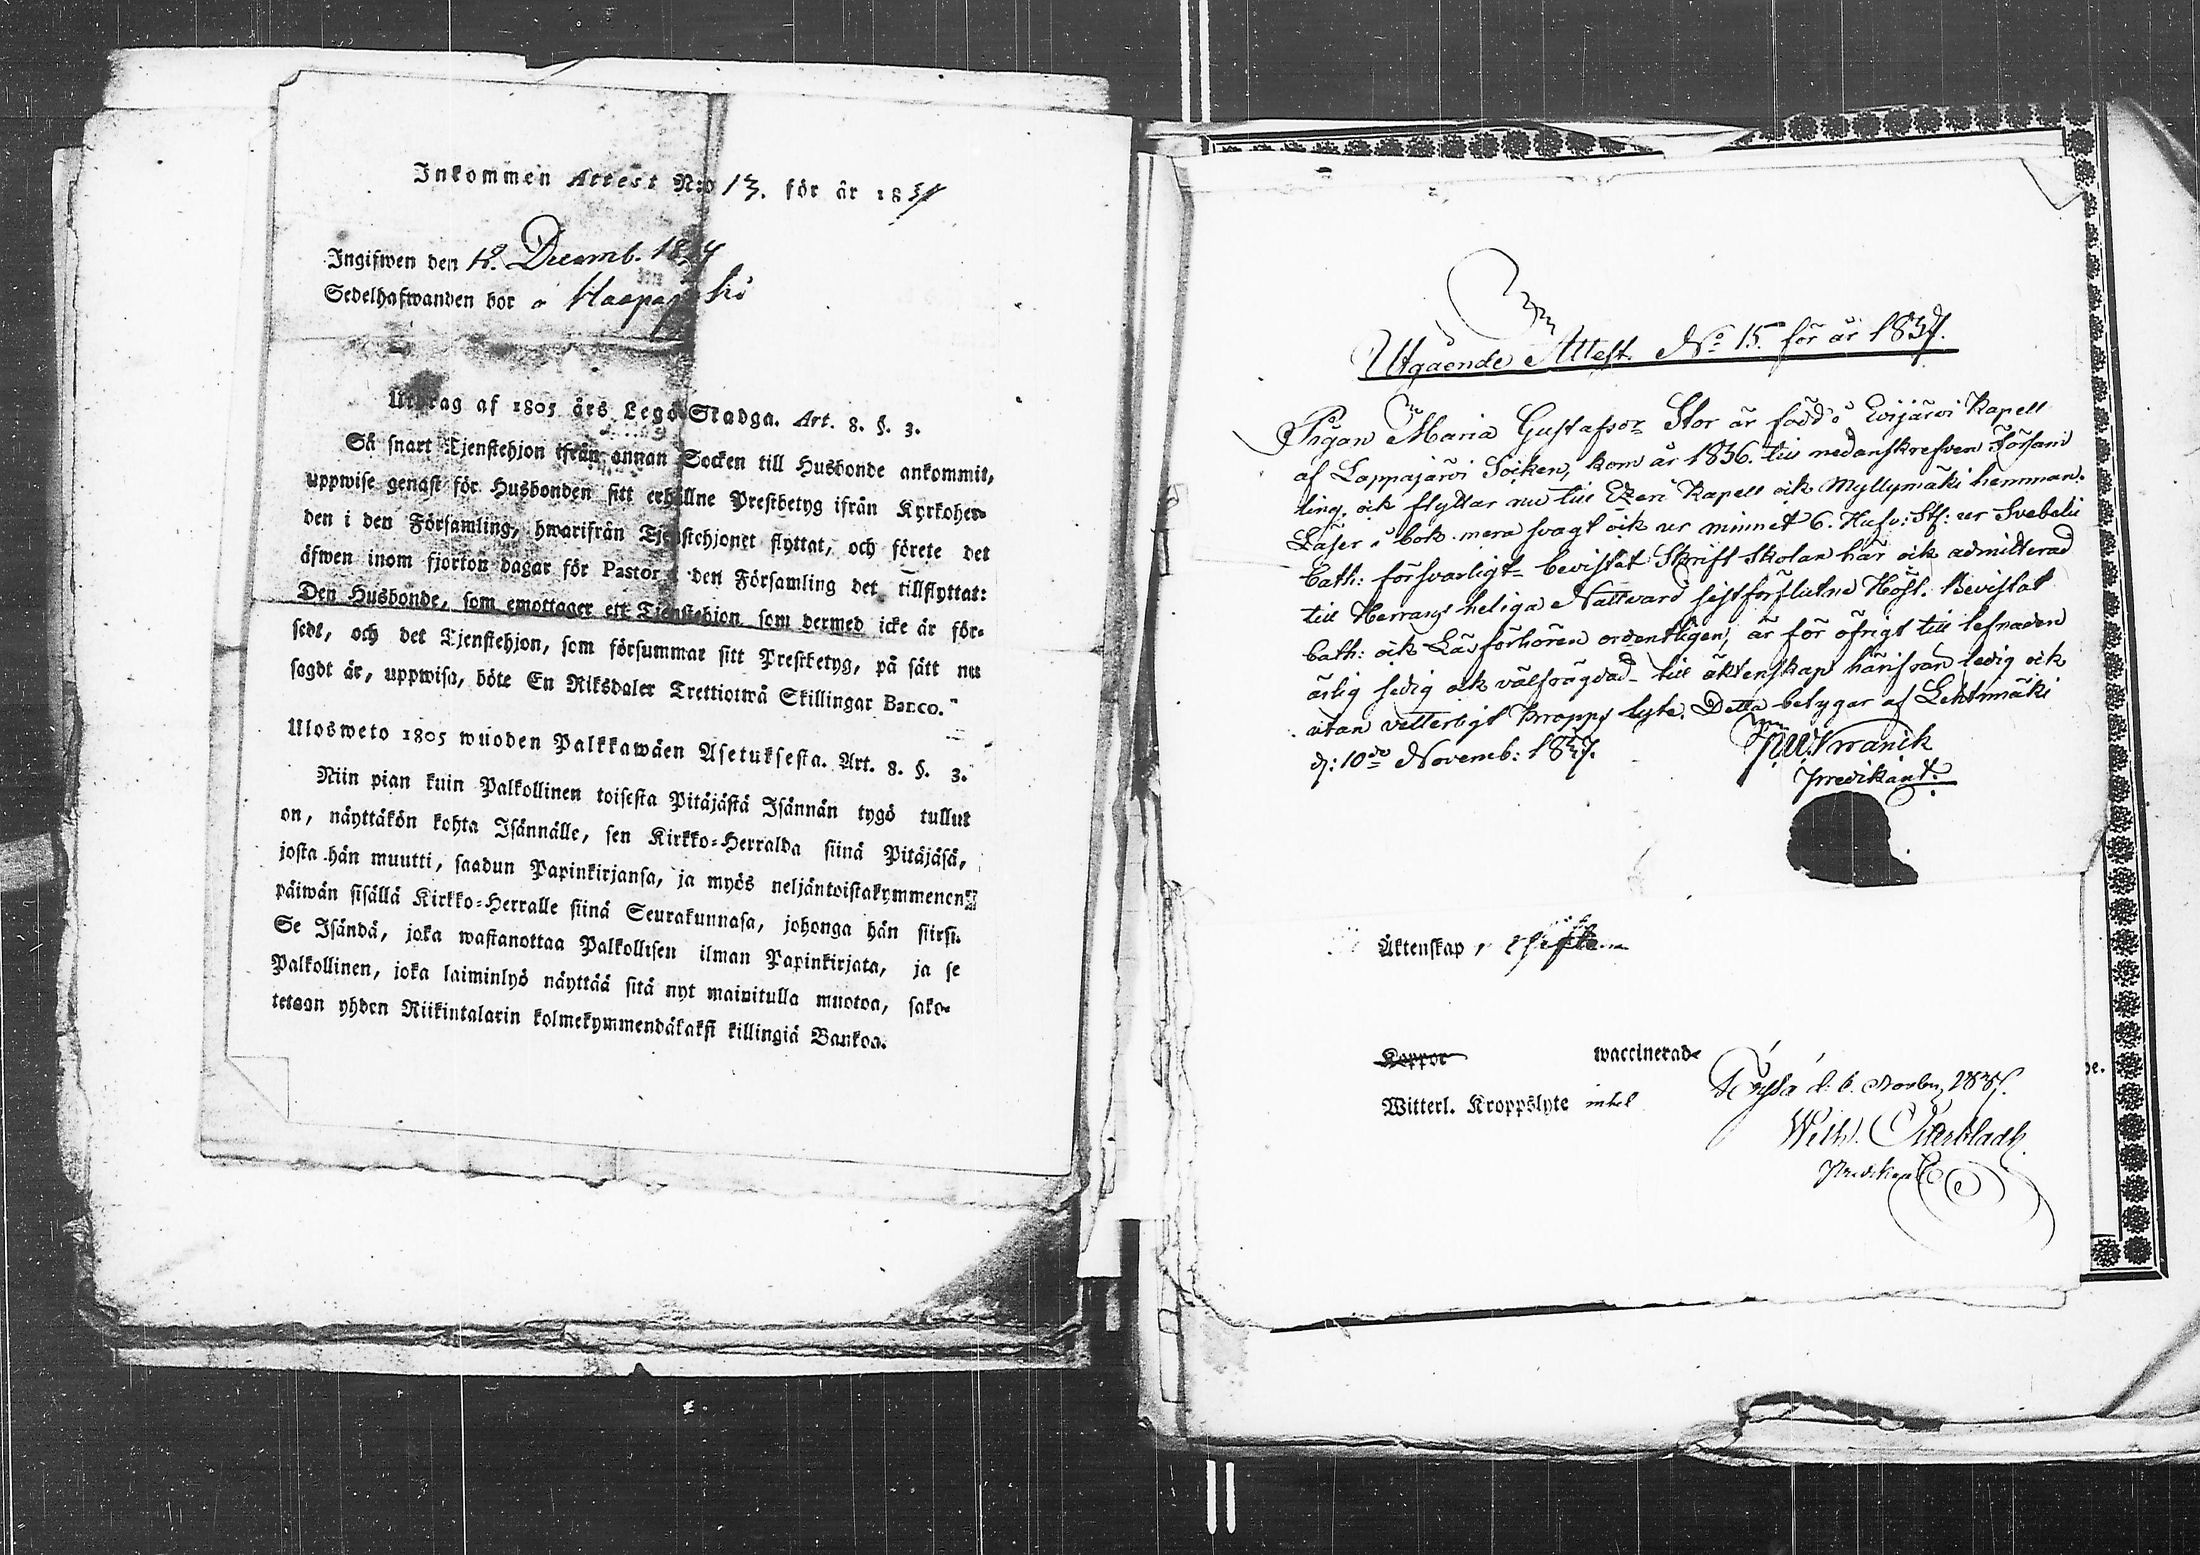 Inkommen Attest N:o 13. för år 1837
Ingifwen den 12. Decemb. 1837
Sedelhafwanden bor å
Utdrag af 1805 års Lego-Stadga. Art. 8. §. 3.
Så snart Tjenstehjon ifrån annan Socken till Husbonde ankommit,
uppwise genast för Husbonden sitt erhållne Prestbetyg ifrån Kyrkoher-
den i den Församling, hwarifrån Tjenstehjonet flyttat, och förete det
äfwen inom fjorton dagar för Pastor i den Församling det tillflyttat:
Den Husbonde, som emottager ett Tjenstehjon som dermed icke är för-
sedt, och det Tjenstehjon, som försummar sitt Prestbetyg, på sätt nu
sagdt är, uppwisa, böte En Riksdaler Trettiotwå Skillingar Banco.
Ulosweto 1805 wuoden Palkkawäen Asetuksesta. Art. 8. §. 3.
Niin pian kuin Palkollinen toisesta Pitäjästä Isännän tygö tullut
on, näyttäkön kohta Isännälle, sen Kirkko-Herralda siinä Pitäjäsä,
josta hän muutti, saadun Papinkirjansa, ja myös neljäntoistakymmenen
päiwän sisällä Kirkko-Herralle siinä Seurakunnasa, johonga hän siirsi.
Se Isändä, joka wastanottaa Palkollisen ilman Papinkirjata, ja se
Palkollinen, joka laiminlyö näyttää sitä nyt mainitulla muotoa, sako-
tetaan yhden Riikintalarin kolmekymmendäkaksi killingiä Bankoa.
Utgående Attest. No 15. för år 1837.
Pigan Maria Gustafsor Stor är född i Evijärvi Kapell
af Lappajärvi Socken, kom år 1836. till nedanskrefven Försam
ling, och flyttar nu till Etzeri Kapell och Myllymäki hemman.
Läser i bok mera svagt och ur minnet 6. Hufv: Stf: ur Svebelii
Cath: försvarligt - bevistat Skrift Skolan här och admitterad
till Herrans heliga Nattvard sistförflutne Höst. Bevistat
Cath: och Läsförhören ordentligen, är för öfrigt till lefnaden
ärlig sedig och välfrägdad - till äktenskap härifrån ledig och
utan vetterligt kropps lyte. Detta betygar af Lehtimäki
d: 10de Novemb: 1837.
Predikant.
Äktenskap,
Koppor waccinerad
Witterl. Kroppslyte intet
d. 6. 1837.
Wilh.
Predikant